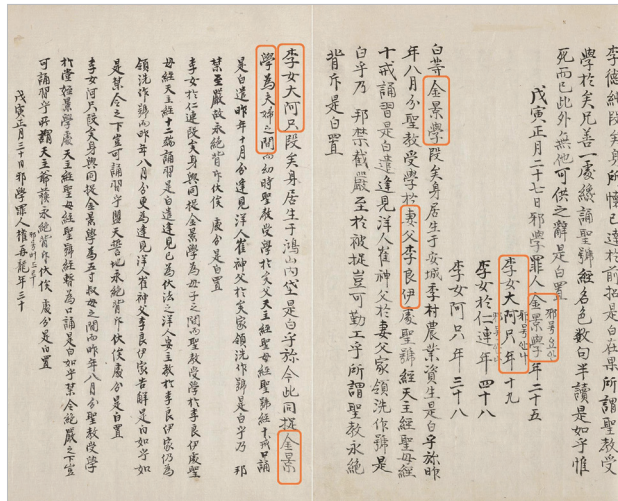 李德純段矣身所懷已達於前招是白在果所謂聖教受
學於矣兄善一處纔誦聖號經名色數句半讀是如乎惟
死而已此外無他可供之辭是白置
戊寅正月二十七日邪學罪人金景學年二十五
李女大阿只年十九
李女於仁連年四十八
李女阿只年三十八
白等金景學段矣身居生于安城李村農業資生是白乎旀昨
年八月分聖教受學於妻父李良伊處聖號經天主經聖母經
十戒誦習是白遣達見洋人崔神父於妻父家領洗作號是
白乎乃邪禁截嚴至於被捉豈可勤工乎所謂聖教永絶
背斥是白置
李女大阿只段矣身居生于鴻山內垈是白乎旀今此同捉金景
學爲夫婦之間而幼時聖教受學於矣父天主經聖母經聖號經十戒口誦
是白遣昨年十月分達見洋人崔神父於矣家領洗作號是白乎乃邪
禁至嚴故永絶背斥伏俟處分是白置
李女於仁連段矣身與同捉金景學爲母子之間而聖教受學於李良伊處聖
母經天主經十二端誦習是白遣達見已爲伏法之洋人安主教於李良伊家仍爲
領洗作號而昨年八月分更爲達見洋人崔神父李良伊家告解是白如乎如
是禁令之下豈可誦習乎圖天誓地永絶背斥伏俟處分是白置
李女阿只段矣身與同捉金景學爲五寸叔母之間而昨年八月分聖教受學
於堂姪景學處天主經聖母經聖號經聲爲口誦是白如乎禁令絶嚴之下豈
可誦習乎所謂天主爺讀永絶背斥伏俟處分是白置
戊寅正月三十日邪學罪人權再龍年三十